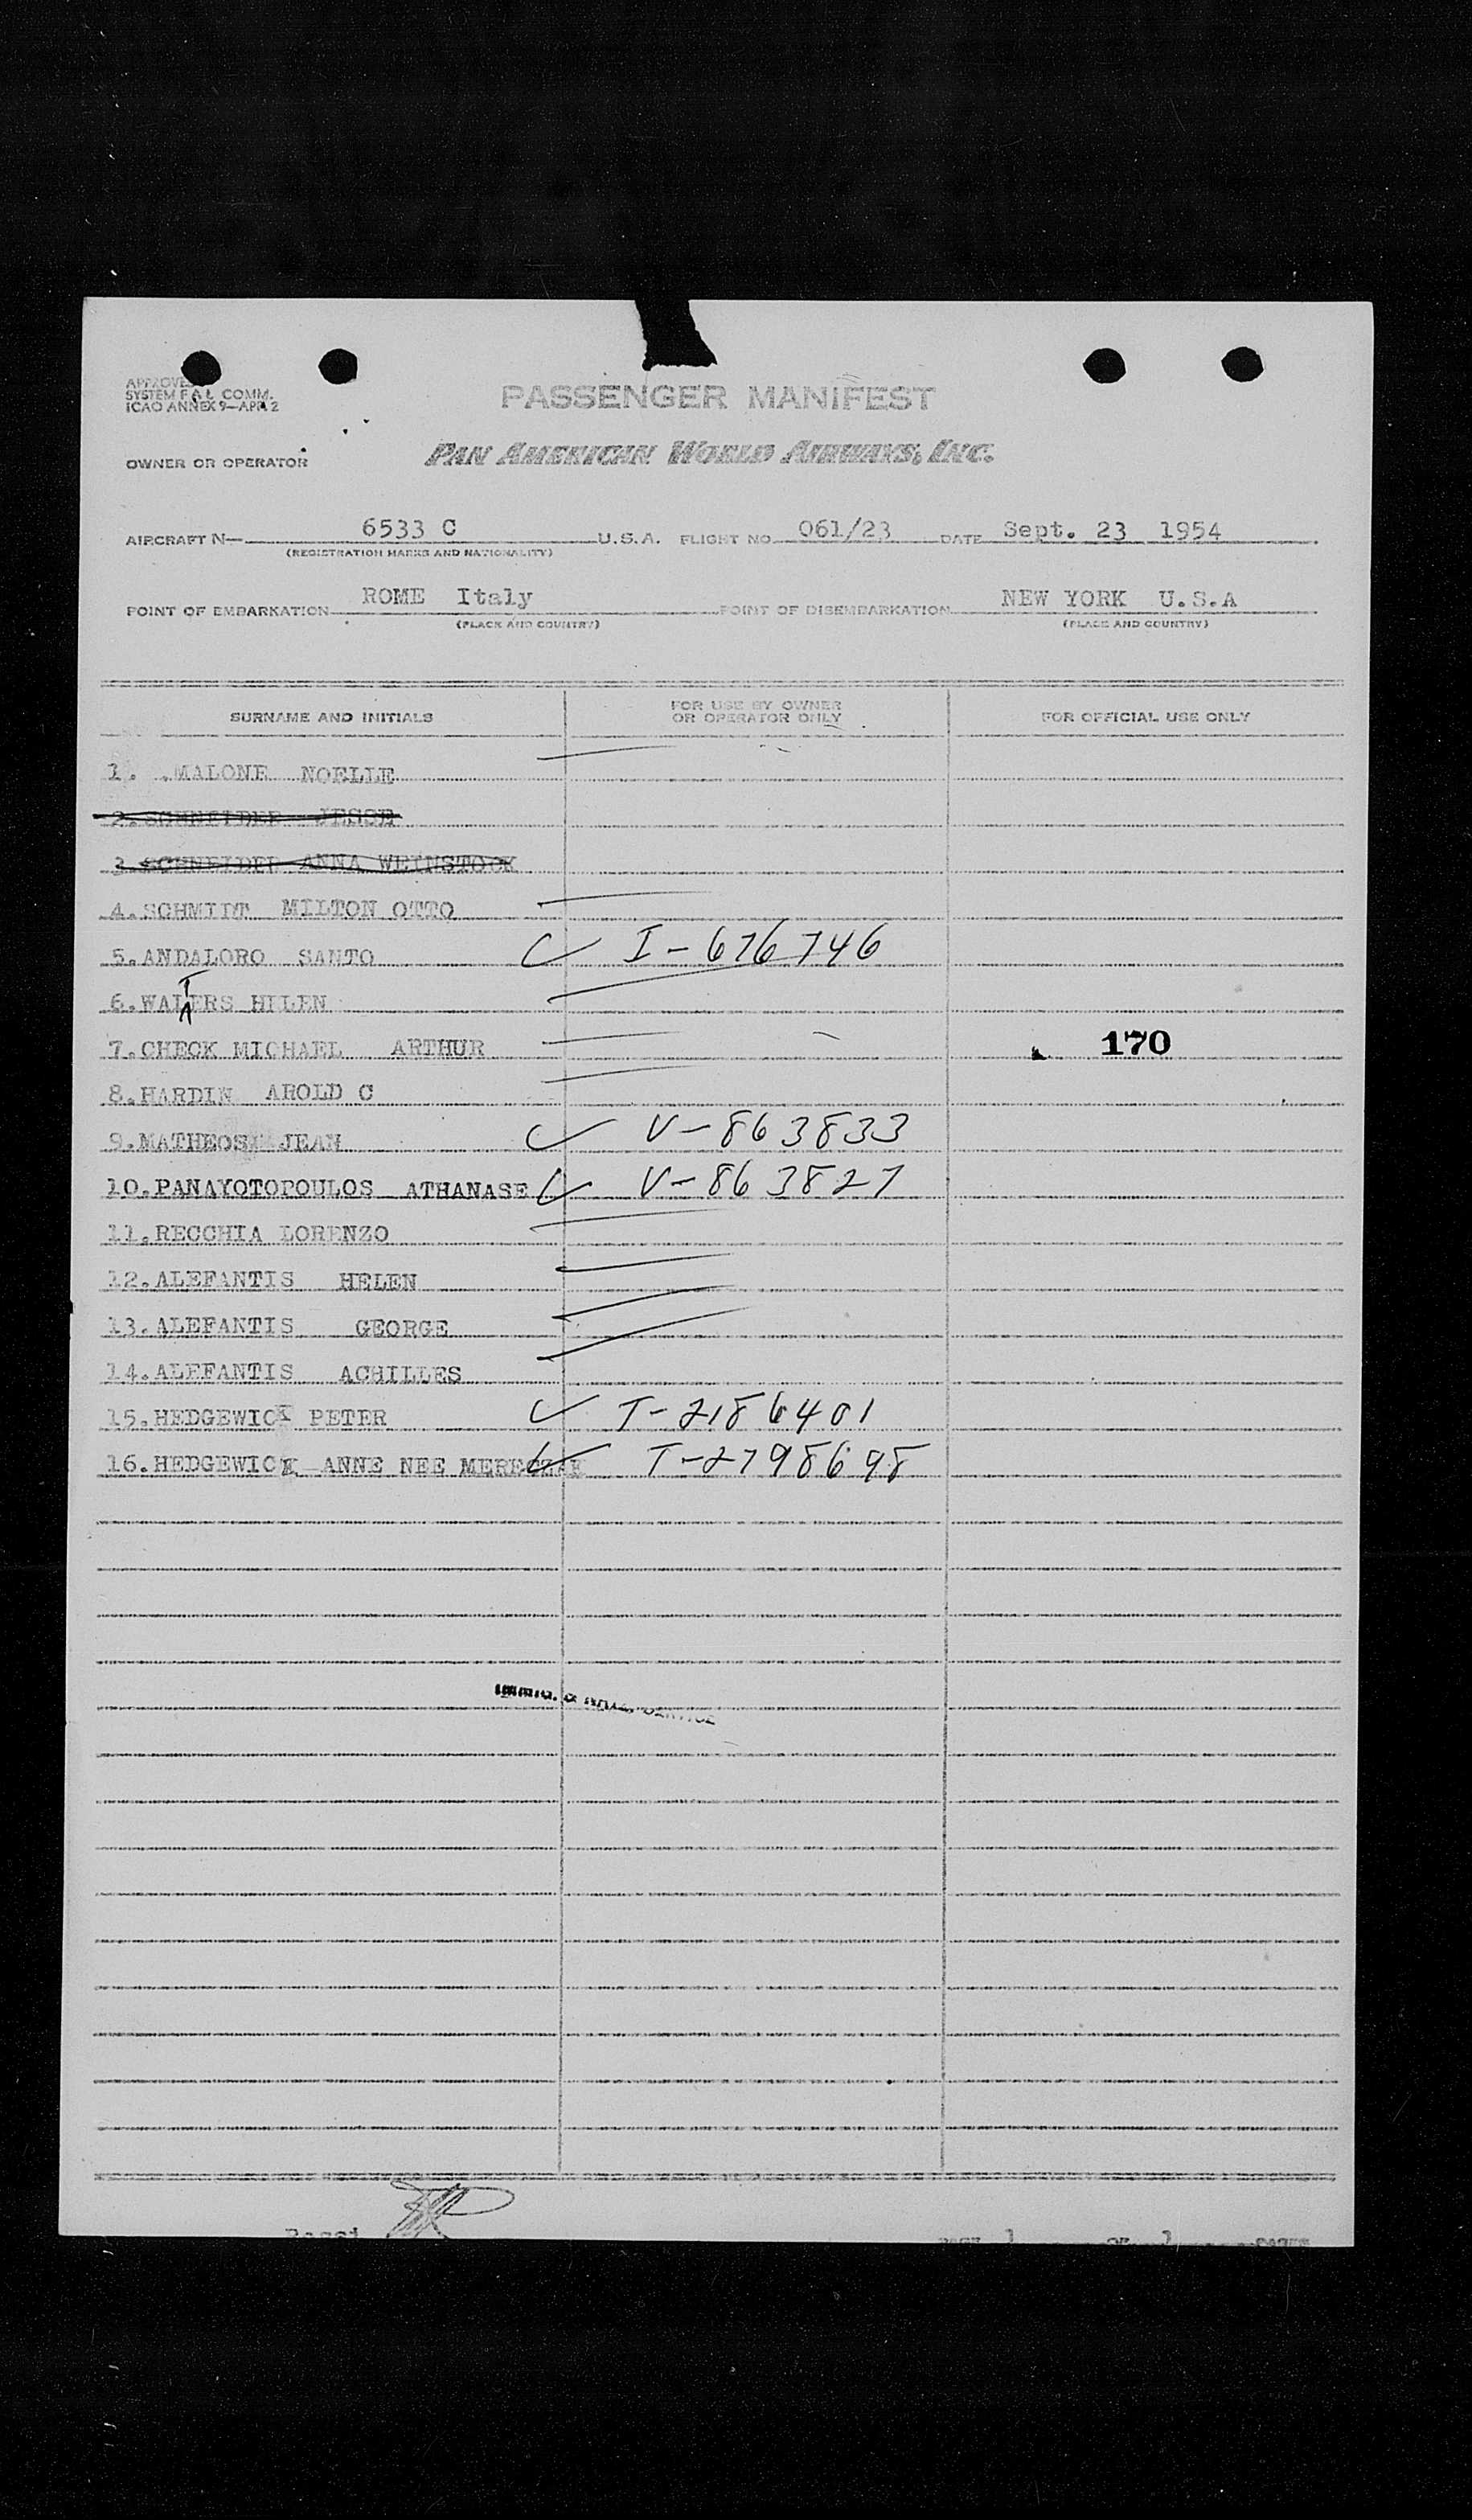 APPROVED
SYSTEM F A L COMM.
ICAO ANNEX 9—APR 2
PASSENGER MANIFEST
OWNER OR OPERATOR PAN AMERICAN WORLD AIRWAYS, INC.
AIRCRAFT N— 6533 C U.S.A. FLIGHT NO. 061/23 DATE Sept. 23 1954
(REGISTRATION MARKS AND NATIONALITY)
POINT OF EMBARKATION ROME Italy POINT OF DISEMBARKATION NEW YORK U.S.A
(PLACE AND COUNTRY) (PLACE AND COUNTRY)
SURNAME AND INITIALS FOR USE BY OWNER OR OPERATOR ONLY FOR OFFICIAL USE ONLY
1. MALONE NOELLE
2. SCHNEIDER JESSE
3. SCHNEIDER ANNA WEINSTOCK
4. SCHMIDT MILTON OTTO
5. ANDALORO SANTO I-676746
6. WATERS HELEN
7. CHECK MICHAEL ARTHUR 170
8. HARDIN AROLD C
9. MATHEOS JEAN V-863833
10. PANAYOTOPOULOS ATHANASE V-863827
11. RECCHIA LORENZO
12. ALEFANTIS HELEN
13. ALEFANTIS GEORGE
14. ALEFANTIS ACHILLES
15. HEDGEWICK PETER T-2186401
16. HEDGEWICK ANNE NEE T-2798698
IMMIG. & NATZ. SERVICE
PAGE 1 OF 1 PAGES